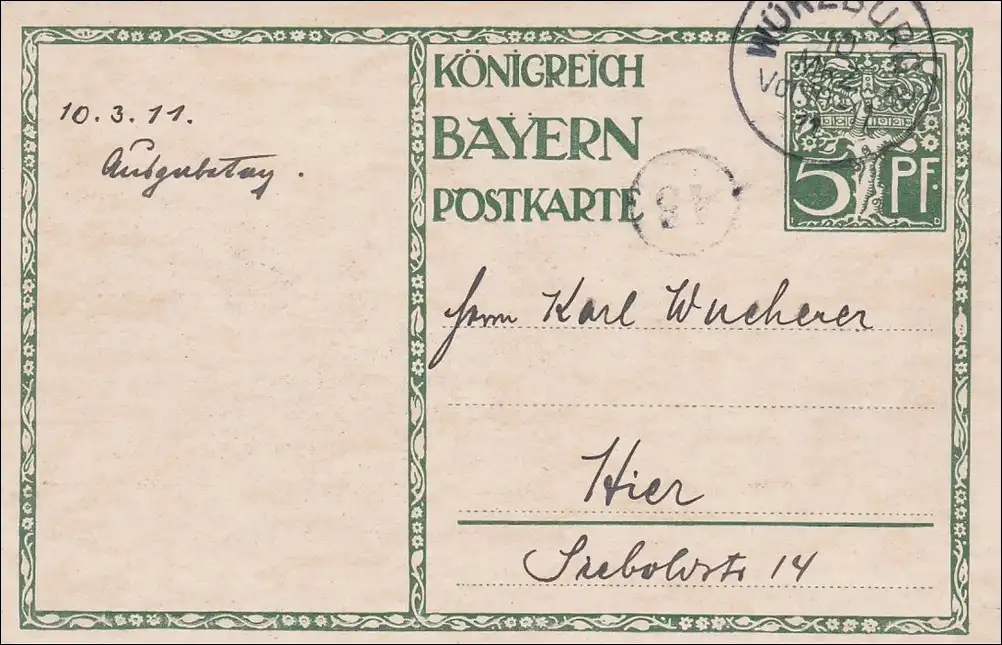 10.3.11.
Ausgabetag.
KÖNIGREICH
BAYERN
POSTKARTE
WÜRZBURG
10
MRZ
11
5 PF.
Herrn Karl Wucherer
Hier
Sieboldstr 14